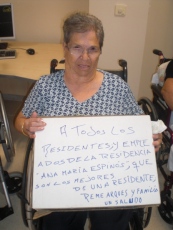 A Todos Los
Residentes y emple
ados de la residencia
"Ana María Espinós", que
son los mejores
de una residente.
Reme Arques y familia
un saludo